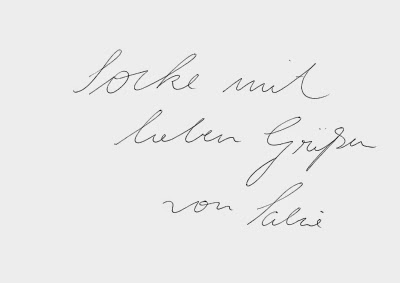 Socke mit
lieben Grüßen
von Sabie